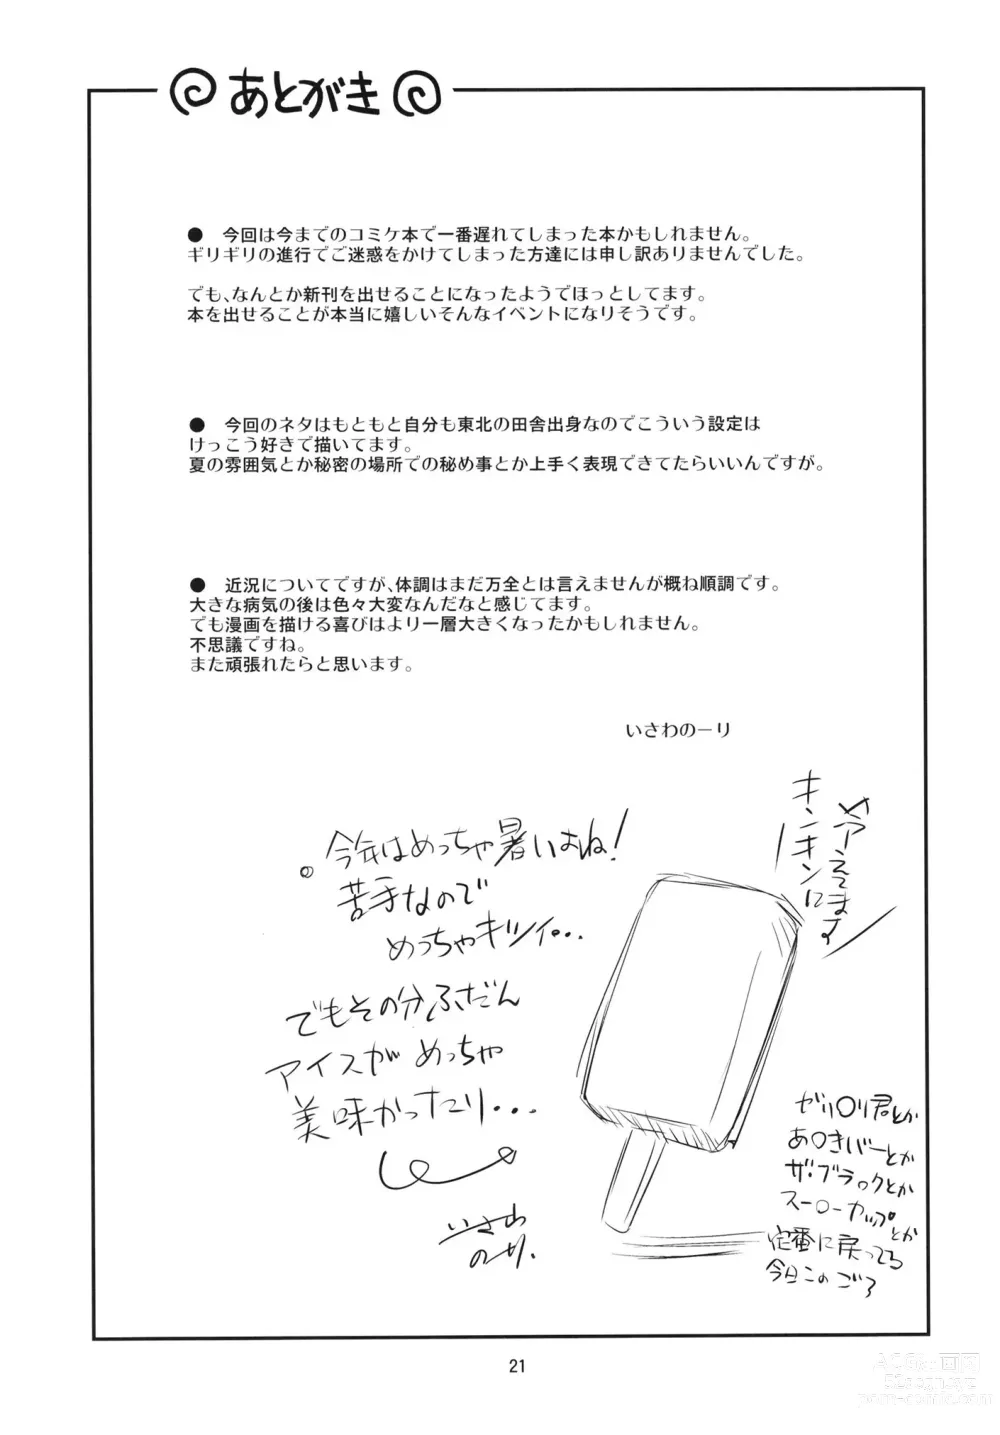 あとがき
● 今回は今までのコミケ本で一番遅れてしまった本かもしれません。
ギリギリの進行でご迷惑をかけてしまった方達には申し訳ありませんでした。
でも、なんとか新刊を出せることになったようでほっとしてます。
本を出せることが本当に嬉しいそんなイベントになりそうです。
● 今回のネタはもともと自分も東北の田舎出身なのでこういう設定は
けっこう好きで描いてます。
夏の雰囲気とか秘密の場所での秘め事とか上手く表現できてたらいいんですが。
● 近況についてですが、体調はまだ万全とは言えませんが概ね順調です。
大きな病気の後は色々大変なんだなと感じてます。
でも漫画を描ける喜びはより一層大きくなったかもしれません。
不思議ですね。
また頑張れたらと思います。
いさわのーり
キンキンに
ヤアえてます
今年はめっちゃ暑いよね!
苦手なので
めっちゃキツイ...
でもその分ふだん
アイスがめっちゃ
美味かったり...
いさわ
のーり.
ガリ○リ君とか
あ○きバーとか
ザ・ブラックとか
スー○ーカップとか
定番に戻ってる
今日このごろ
21